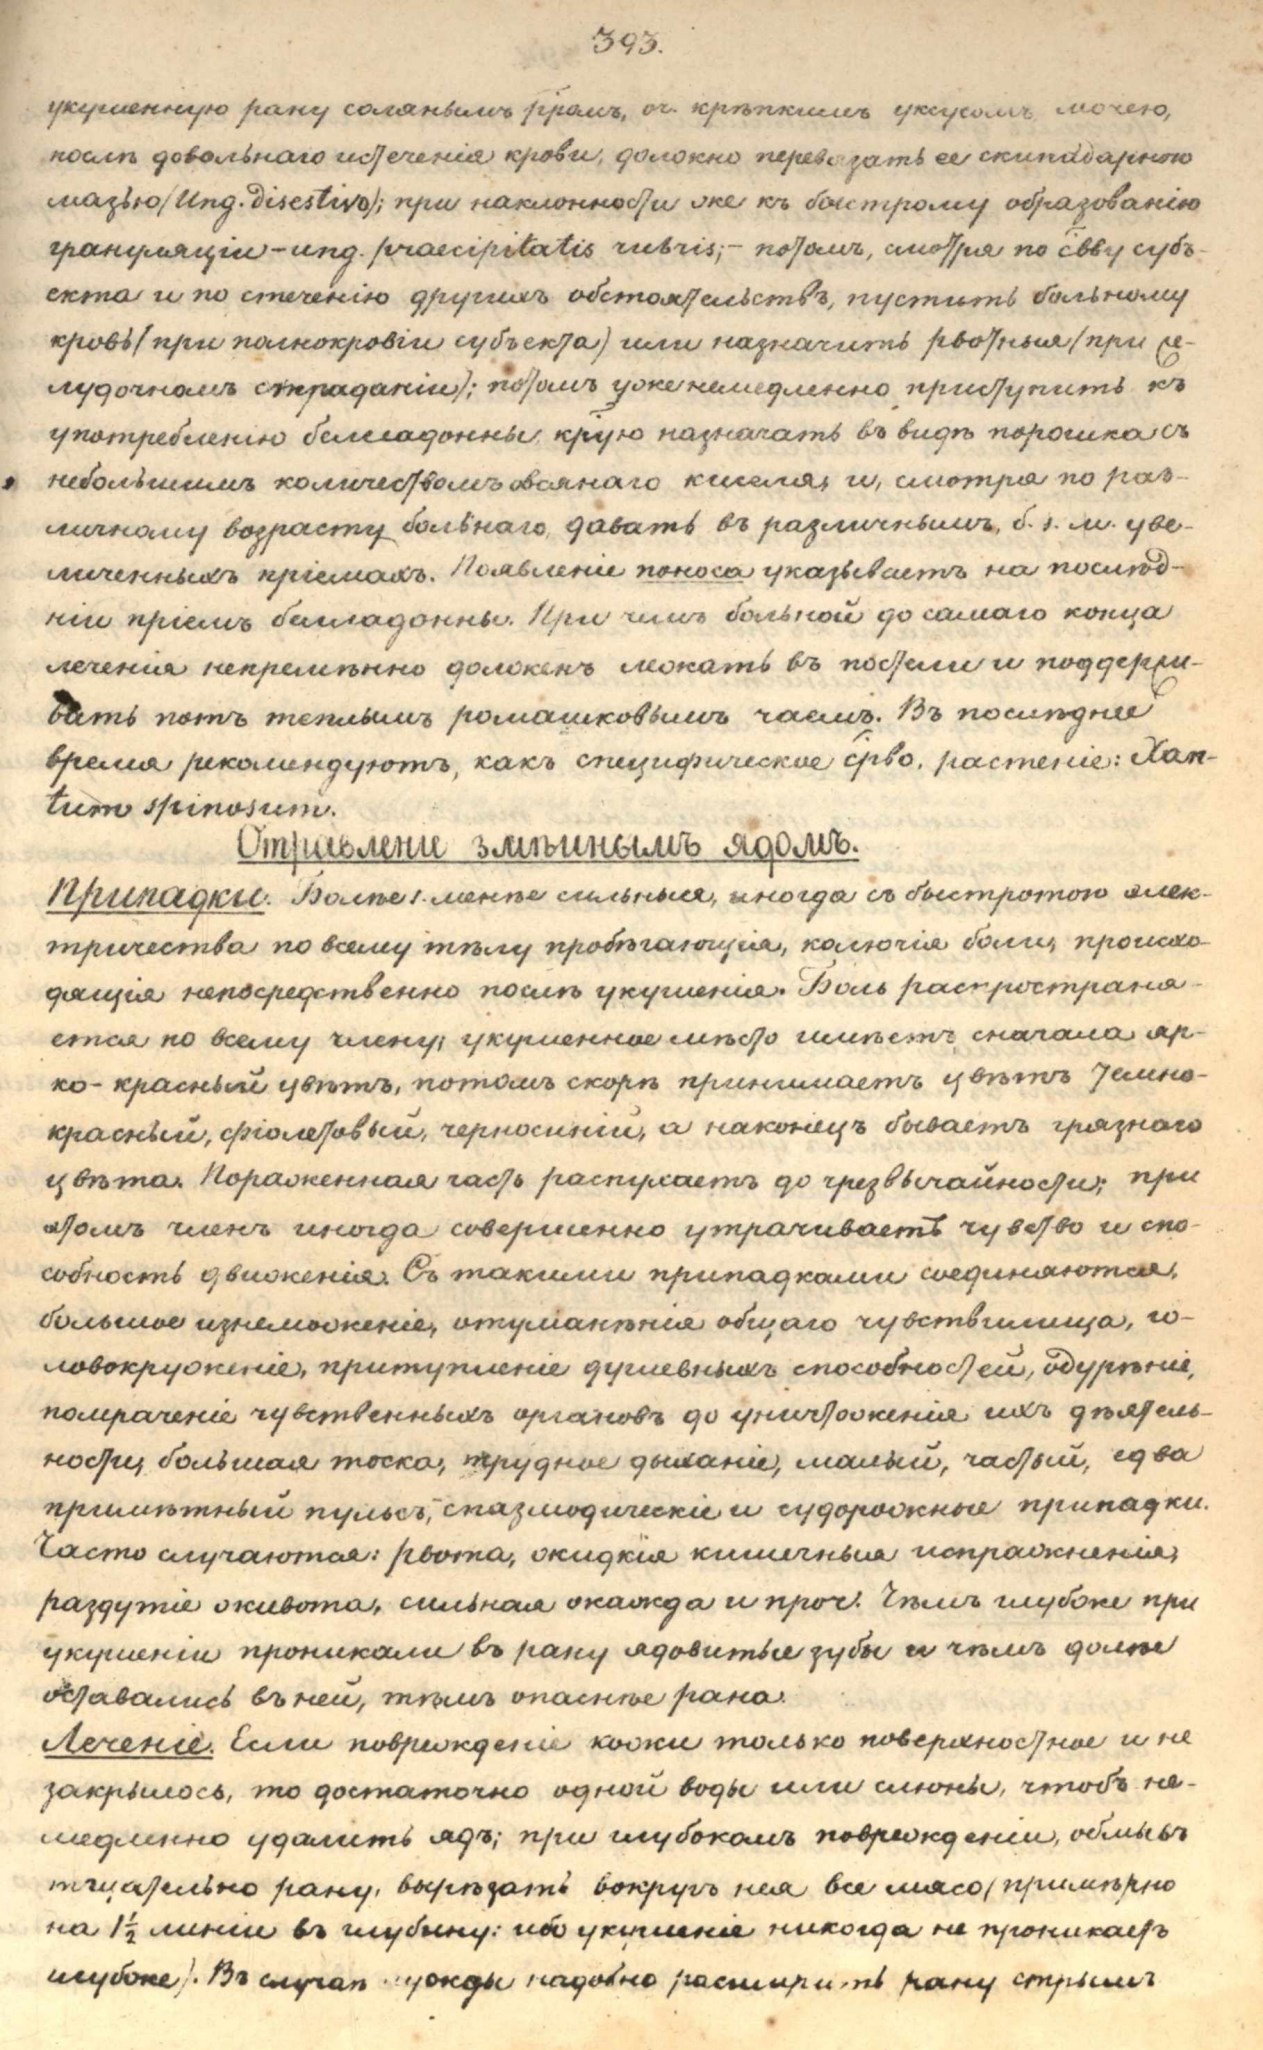 393.
укушенную рану солянымъ р̃ромъ, оч. крѣпкимъ уксусомъ мочею,
послѣ довольнаго истеченія крови, должно перевязать ее скипидарною
мазью (Ung. Disestivo); при наклонности же къ быстрому образованію
грануляціи – ung. praecipitatis rubris; – потомъ, смотря по свву субъ-
екта и по стеченію другихъ обстоятельствъ, пустить больному
кровь (при полнокровіи субъекта) или назначить рвотныя (при же-
лудочномъ страданіи); потомъ уже немедленно приступить къ
употребленію белладонны, крую назначать въ видѣ порошка съ
небольшимъ количествомъ овсянаго киселя, и, смотря по раз-
личному возрасту больнаго, давать въ различнымъ, б. 1. м. уве-
личенныхъ пріемахъ. Появленіе поноса указываетъ на послѣд-
ніи пріемъ белладонны. При чемъ больной до самаго конца
леченія непремѣнно долженъ лежать въ постели и поддержи-
вать потъ теплымъ ромашковымъ чаемъ. Въ послѣднее
время рекомендуютъ, какъ специфическое срво, растеніе: Xan-
tum spinosum.
Отравлени змѣинымъ ядомъ.
Припадки. Болѣе 1. менѣе сильныя, иногда съ быстротою элек-
тричества по всему тѣлу пробѣгающія, колючія боли, происхо-
дящія непосредственно послѣ укушенія. Боль распространя-
ется по всему члену; укушенное мѣсто имѣетъ сначала яр-
ко-красный цвѣтъ, потомъ скорѣ принимаетъ цвѣтъ темно-
красный, фіолетовый, черносиній, а наконецъ бываетъ грязнаго
цвѣта. Пораженная часть распухаетъ до чрезвычайности; при
этомъ членъ иногда совершенно утрачиваетъ чувство и спо-
собность движенія. Съ такими припадками соединяются,
большое изнеможеніе, отуманѣнія общаго чувствилища, го-
ловокруженіе, притупленіе душевныхъ способностей, одурѣніе,
помраченіе чувственныхъ органовъ до уничтоженія ихъ дѣятель-
ности, большая тоска, трудное дыханіе, малый, частый, едва
примѣтный пульсъ, спазмодическіе и судорожные припадки.
Часто случаются: рвота, жидкія кишечныя испражненія,
раздутіе живота, сильная жажда и проч. Чѣмъ глубже при
укушеніи проникали въ рану ядовитые зубы и чѣмъ долѣе
оставались въ ней, тѣмъ опаснѣе рана.
Леченіе. Если поврежденіе кожи только поверхностное и не
закрылось, то достаточно одной воды или слюны, чтобъ не-
медленно удалить ядъ; при глубокомъ поврежденіи, обмывъ
тщательно рану, вырѣзать вокругъ нея все мясо (примѣрно
на 1½ линіи въ глубину: ибо укушеніе никогда не проникаетъ
глубже). Въ случаѣ нужды надобно расширить рану стрымъ